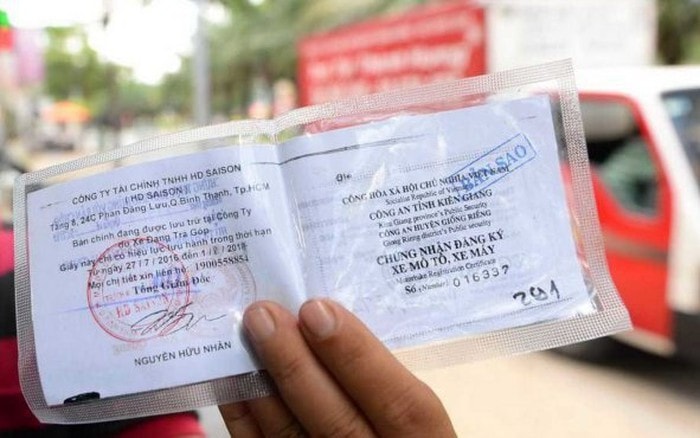 CÔNG TY TÀI CHÍNH TNHH HD SAISON
( HD SAISON )
Tầng 8, 24C Phan Đăng Lưu, Q.Bình Thạnh, Tp.HCM
Bản chính đang được lưu trữ tại Công Ty
do Xe Đang Trả Góp
Giấy này chỉ có hiệu lực lưu hành trong thời hạn
Từ ngày 27 / 7 / 2016 đến 1 / 8 / 2018
Mọi chi tiết xin liên hệ: 1900558854
Tổng Giám Đốc
HD SAISON
NGUYỄN HỮU NHÂN
BẢN SAO
CỘNG HÒA XÃ HỘI CHỦ NGHĨA VIỆT NAM
Socialist Republic of Vietnam
CÔNG AN TỈNH KIÊN GIANG
Kien Giang province's Public Security
CÔNG AN HUYỆN GIỒNG RIỀNG
Giong Rieng district's Public Security
CHỨNG NHẬN ĐĂNG KÝ
XE MÔ TÔ, XE MÁY
Motorbike Registration Certificate
Số (Number) 016337
291